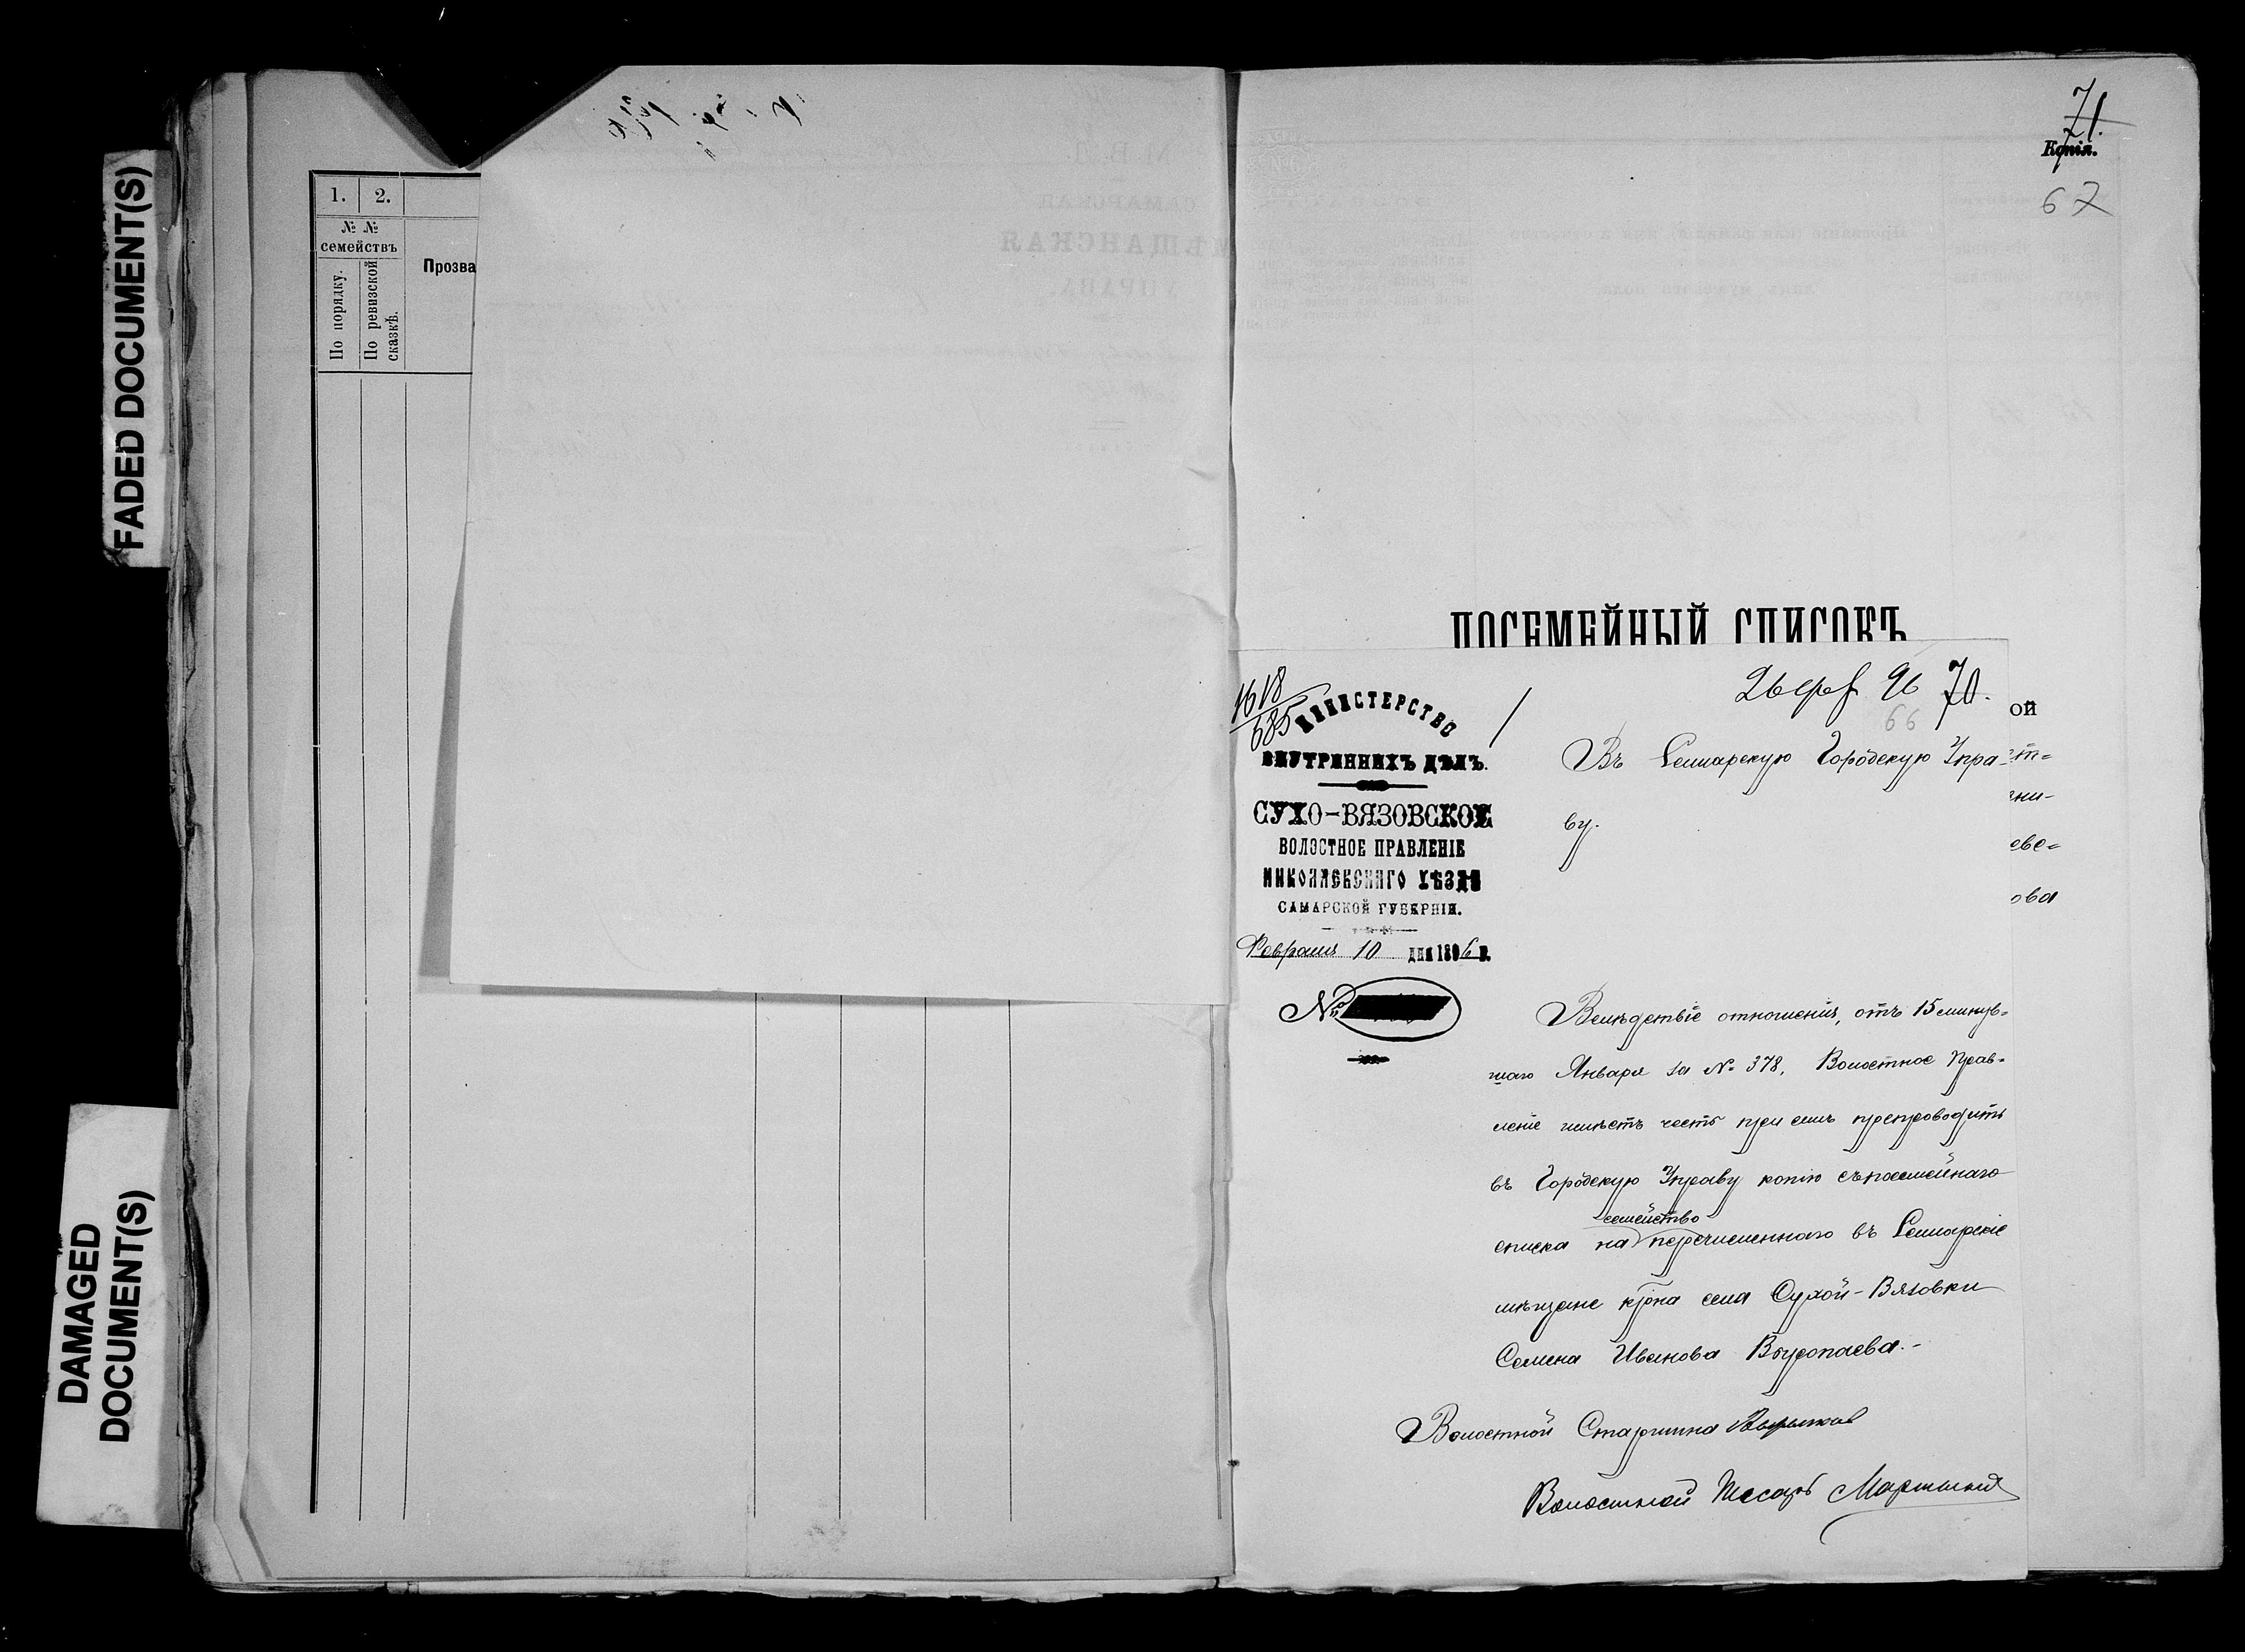 FADED DOCUMENT(S)
DAMAGED
DOCUMENT(S)
1. 2.
№ №
семействъ
По порядку.
По ревизской
сказкѣ.
Прозва
71.
Копія.
67
ПОСЕМЕЙНЫЙ СПИСОКЪ
1618
685
26 фев 96 70.
66
ой
МИНИСТЕРСТВО
ВНУТРЕННИХЪ ДѢЛЪ.
СУХО-ВЯЗОВСКОЕ
ВОЛОСТНОЕ ПРАВЛЕНІЕ
НИКОЛАЕВСКАГО УѢЗДА
САМАРСКОЙ ГУБЕРНІИ.
Февраля 10 дня 1896 г.
№
Въ Самарскую Городскую Упра-
ву.
ева
ова
Вслѣдствіе отношенія, отъ 15 минув-
шаго Января за № 378, Волостное Прав-
леніе имѣетъ честь при семъ препроводить
въ Городскую Управу копію съ посемейнаго
семейство
списка на перечисленнаго въ Самарскіе
мѣщане кр-на села Сухой-Вязовки
Семена Иванова
Волостной Старшина
Волостной Писарь Мартынов